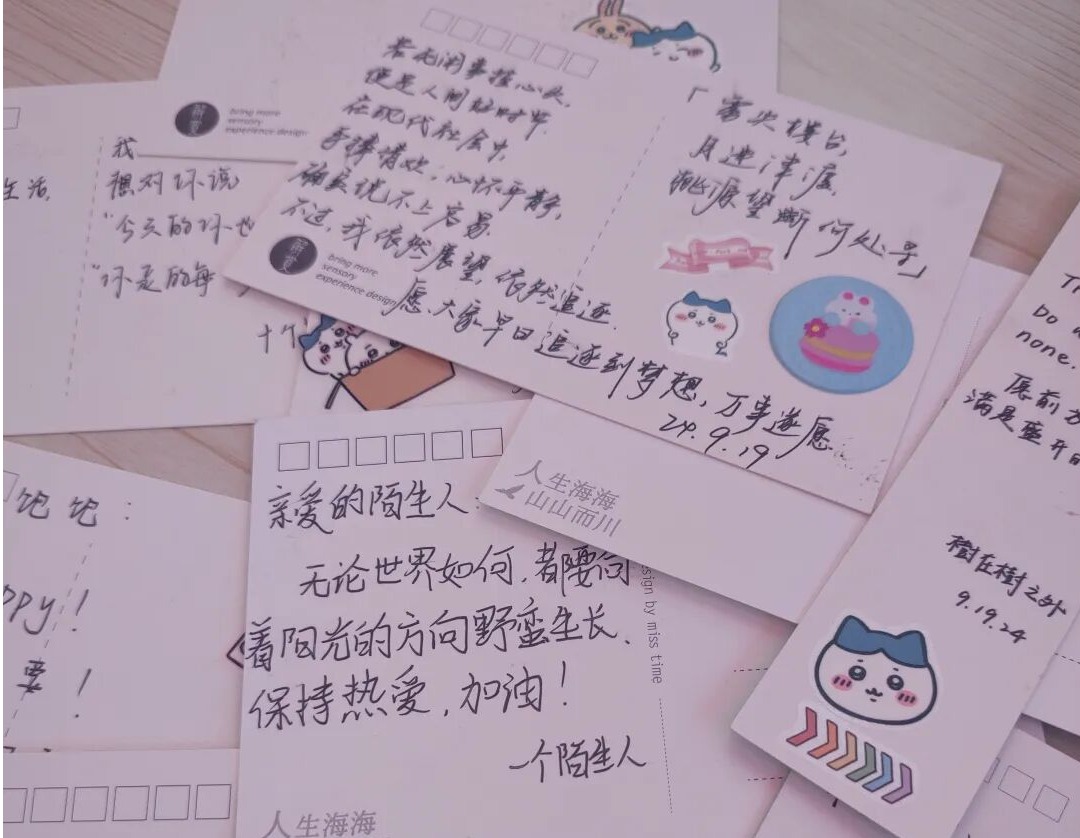 若无闲事挂心头,
便是人间好时节.
在现代社会中,
手捧清欢,心怀平静,
确实说不上容易.
不过,我依然展望,依然追逐.
愿大家早日追逐到梦想,万事遂愿.
24.9.19
「雾失楼台,
月迷津渡,
桃源望断
何处寻」
bring more
sensory
experience design
bring more
sensory
experience design
生活,
我
想对你说
"今天的你也
"你走的每
十个
人生海海
山山而川
亲爱的陌生人:
无论世界如何,都要向
着阳光的方向野蛮生长.
保持热爱,加油!
一个陌生人
sign by miss time
人生海海
饱饱:
ppy!
要!
none.
愿前方
满是盛开的
樹在樹之外
9.19.24